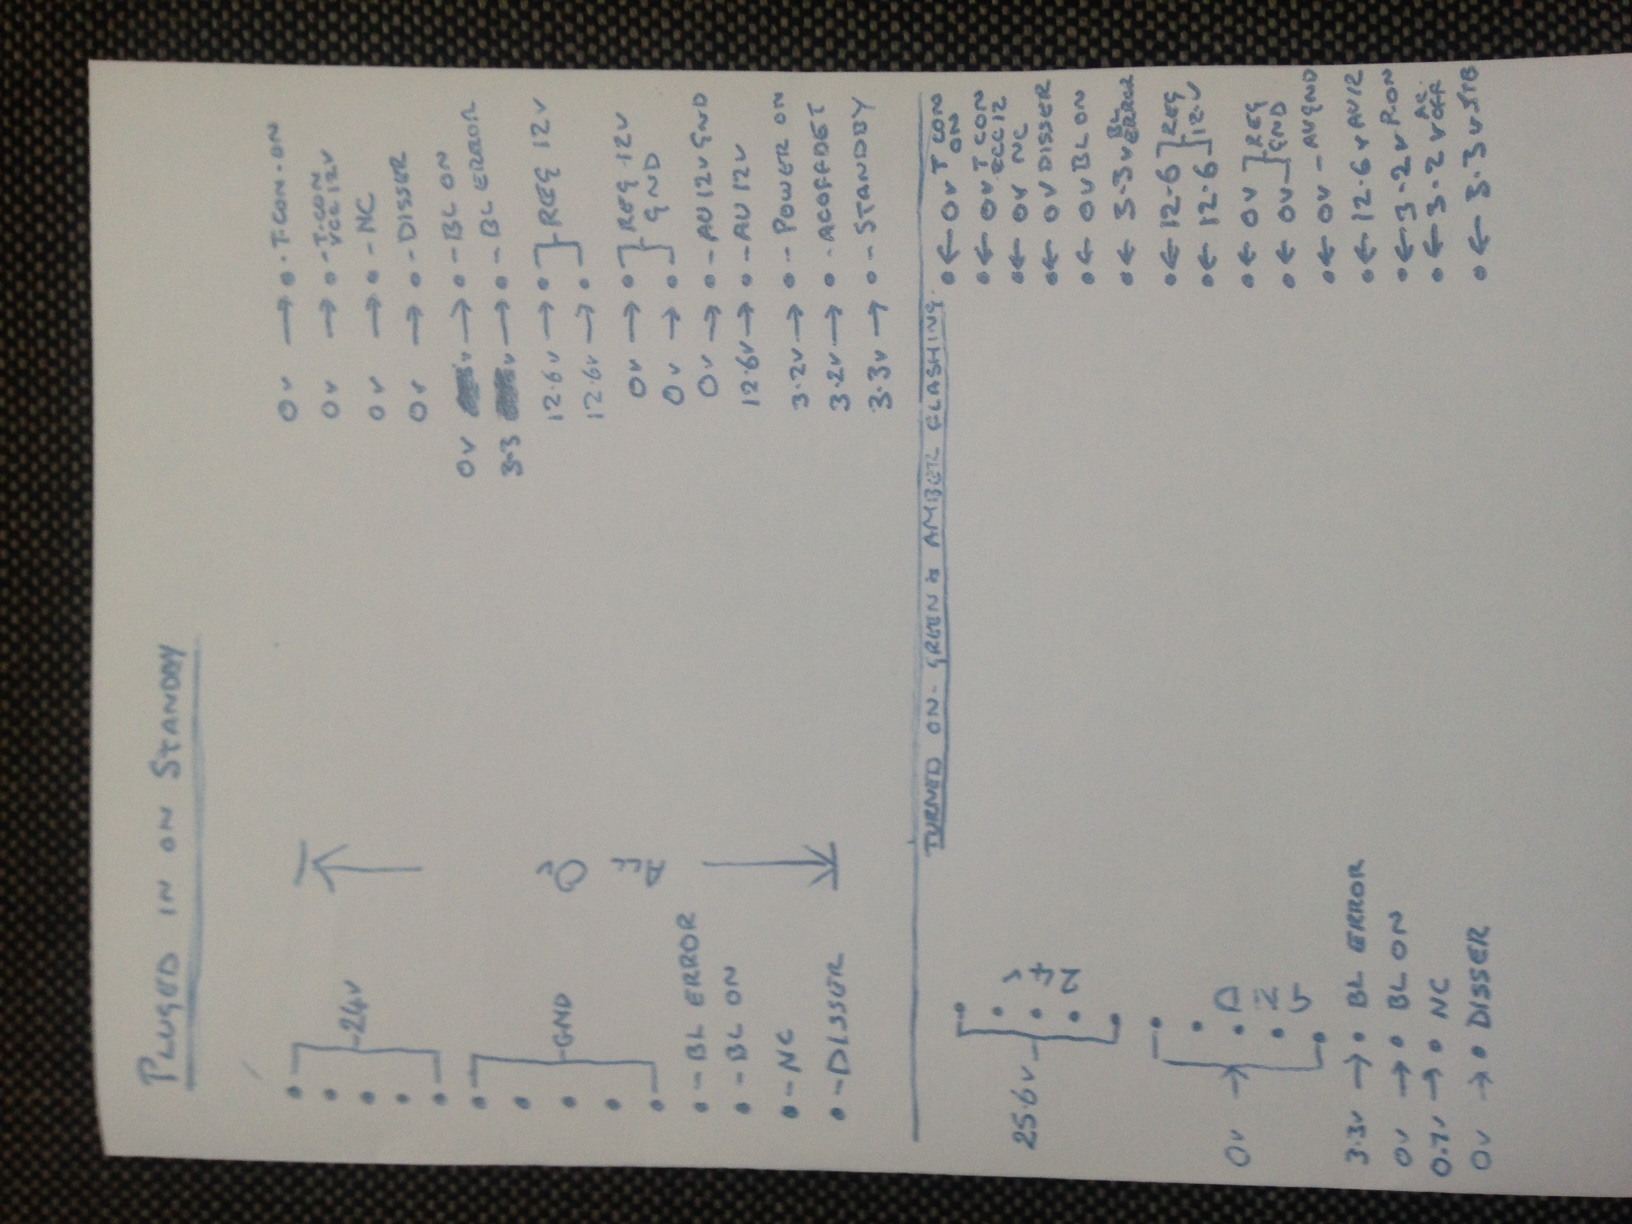 PLUGED IN ON STANDBY
24V
GND
0V
ALL
- BL ERROR
- BL ON
- NC
- DISSER
0V → T.CON-ON
0V → - T-CON VCC 12V
0V → - NC
0V → - DISSER
0V → - BL ON
3.3 → - BL ERROR
12.6V →
12.6V → REG 12V
0V →
0V → REG 12V GND
0V → - AV 12V GND
12.6V → - AV 12V
3.2V → - POWER ON
3.2V → - ACOFFDET
3.3V → - STANDBY
TURNED ON - GREEN & AMBER FLASHING.
25.6V
24V
0V → GND
3.3V → BL ERROR
0V → BL ON
0.7V → NC
0V → DISSER
← 0V T CON ON
← 0V T CON VCC12
← 0V NC
← 0V DISSER
← 0V BL ON
← 3.3V BL ERROR
← 12.6
← 12.6 REG 12V
← 0V
← 0V REG GND
← 0V - AVGND
← 12.6V AV12
← 3.2V P.ON
← 3.2V AC. OFF
← 3.3V STB